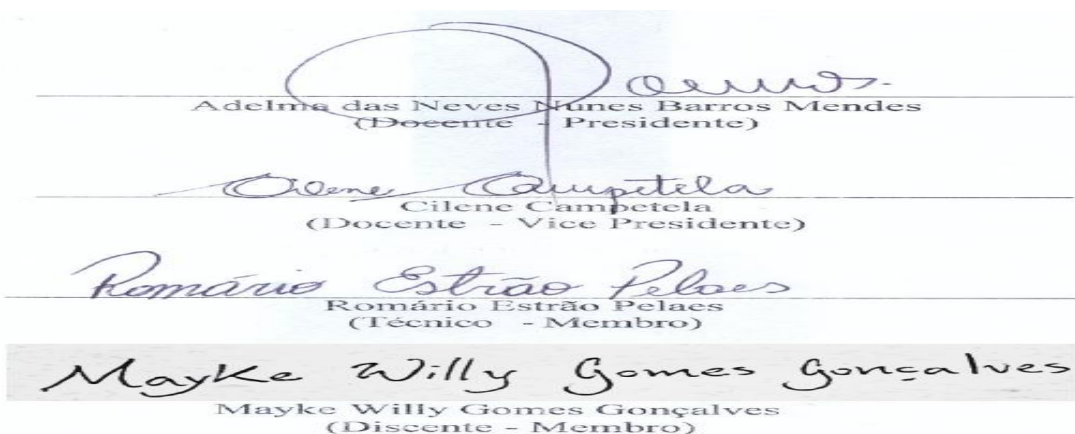 Adelma das Neves Nunes Barros Mendes
(Docente - Presidente)
Cilene Campetela
Cilene Campetela
(Docente - Vice Presidente)
Romário Estrão Pelaes
Romário Estrão Pelaes
(Técnico - Membro)
Mayke Willy Gomes Gonçalves
Mayke Willy Gomes Gonçalves
(Discente - Membro)